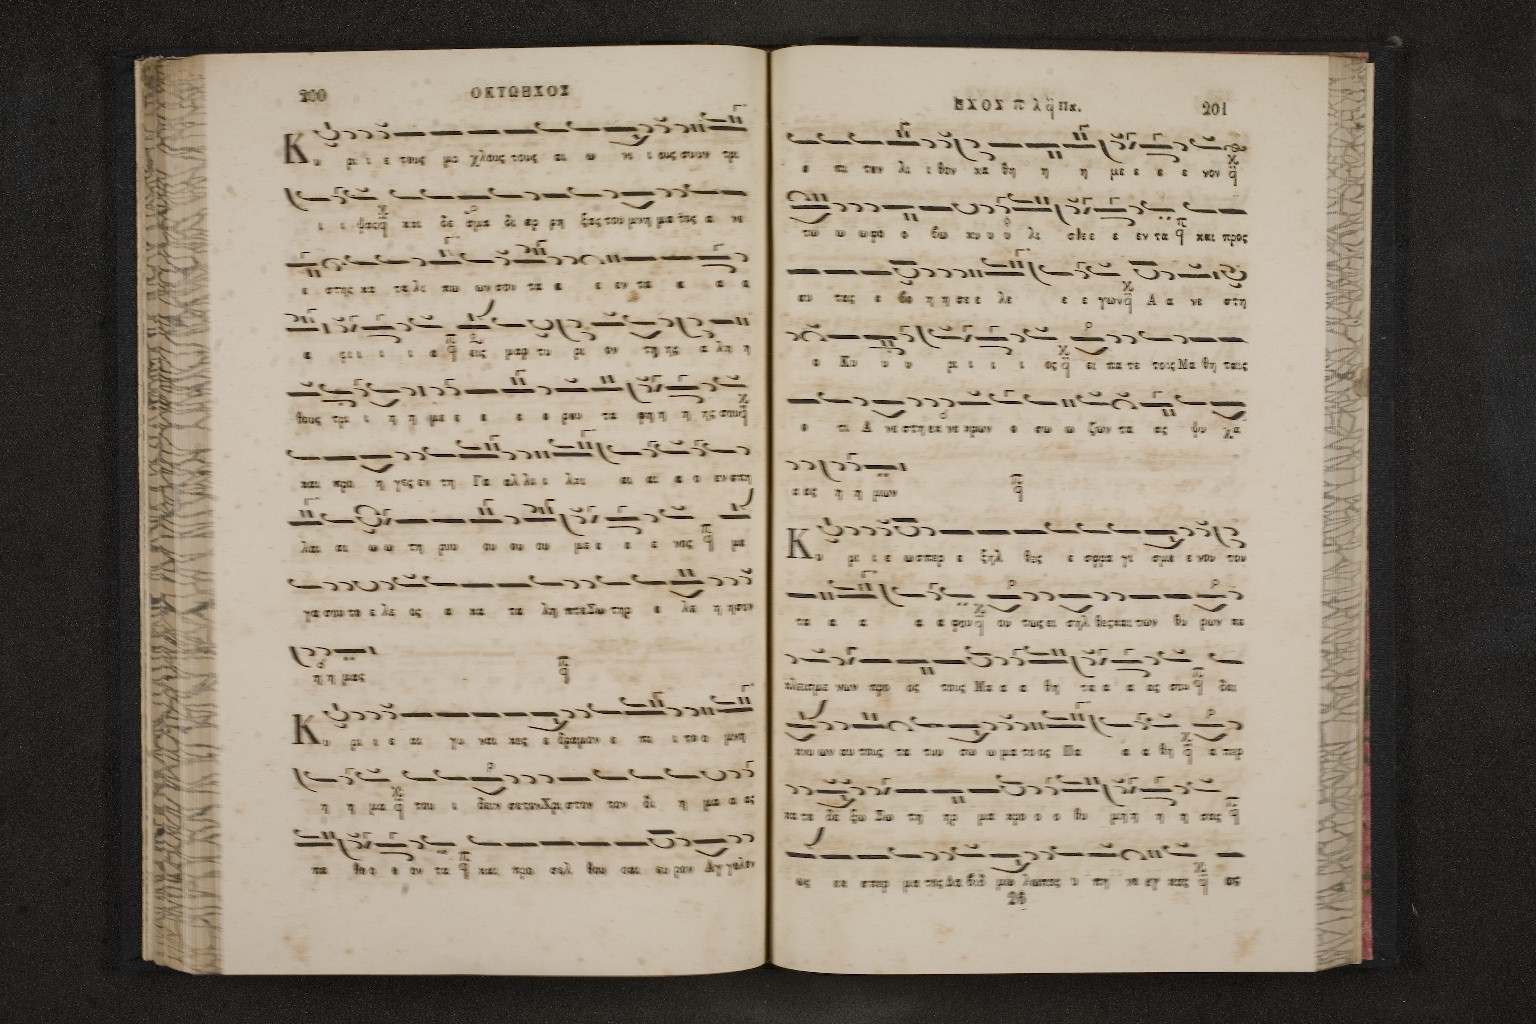 200
ΟΚΤΩΗΧΟΣ
Κυ ρι ι ε τους μο χλους τους αι ω νι ι ους συυν τρι
ι ι ψας και δε σμα δι αρ ρη ξας του μνη μα τος α νε
ε στης κα τα λι πω ων συν τα α ε εν τα α α α
α φι ι ι ι α εις μαρ τυ ρι ον τη ης α λη η
θους τρι ι η η με ε ε ε ο ρου τα φη η η ης σου
και προ η γες εν τη Γα αλ λι ι λαι αι αι α ο εν σπη
λαι αι ω ω τη ρου ου ου ου με ε ε ε νος με
γα σου το ε λε ος α κα τα λη πτε Σω τηρ ε λε η ησον
η η μας
Κυ ρι ι ε αι γυ ναι κες ε δραμον ε πι ι το ο μνη
η η μα του ι δειν σε τον Χρι στον τον δι η μα α ας
πα θο ο ο ον τα και προ σελ θου σαι ευ ρον Αγ γελον
ΗΧΟΣ π λ ᾳ Πα.
201
ε πι τον λι ι θον κα θη η η με ε ε ε νον
τω ω ωφο ο βω κυ υ υ λι σθε ε ε εν τα και προς
αυ τας ε βο η η σε ε λε ε ε γων Α α νε στη
ο Κυ υ υ ρι ι ι ι ος ει πα τε τοις Μα θη ταις
ο τι Α νε στη εκ νε κρων ο σω ω ζων τα ας ψυ χα
α ας η η μων
Κυ ρι ι ε ωσπερ ε ξηλ θες ε σφρα γι σμε ε νου του
τα α α α α φου ου τως ει σηλ θες και των θυ ρων κε
κλεισμε νων προ ος τους Μα α α θη τα α α ας σου δει
κνυων αυτοις τα του σω ω μα το ος Πα α α θη α περ
κα τε δε ξω Σω τη ηρ μα κρο ο ο θυ μη η η η σας
ως εκ σπερ μα τος Δα βιδ μω λωπας υ πη νε εγ κας ως
26